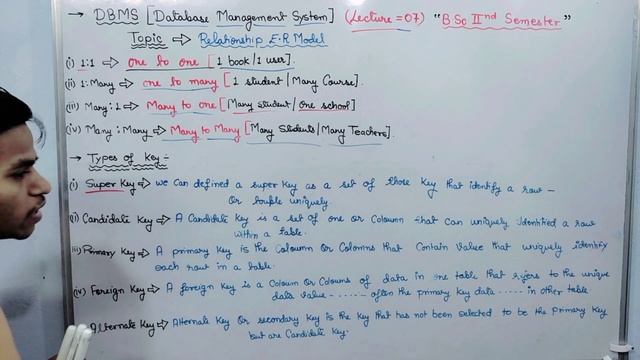 → DBMS [Database Management System] (Lecture = 07) "B.Sc IInd Semester"
Topic ⇒ Relationship E.R Model
(i) 1:1 ⇒ one to one [1 book/1 user].
(ii) 1:Many ⇒ one to many [1 student/Many Course].
(iii) Many:1 ⇒ Many to one [Many student/one school]
(iv) Many:Many ⇒ Many to Many [Many Students/Many Teachers].
→ Types of key :-
(i) Super Key ⇒ we can defined a super key as a set of those key that identify a row -
Or touble uniquely.
(ii) Candidate Key ⇒ A Candidate key is a set of one or Coloumn that can uniquely identified a row
within a table.
(iii) Primary Key ⇒ A primary key is the Coloumn or Colomns that Contain value that uniquely identify
each row in a table.
(iv) Foreign Key ⇒ A foreign key is a Coloum Or Coloums of data in one table that refers to the unique
data value - - - - - - often the primary key data - - - - - in other table
Alternate Key ⇒ Alternate key Or secondary key is the key that has not been selected to be the primary key
but are Candidate key.